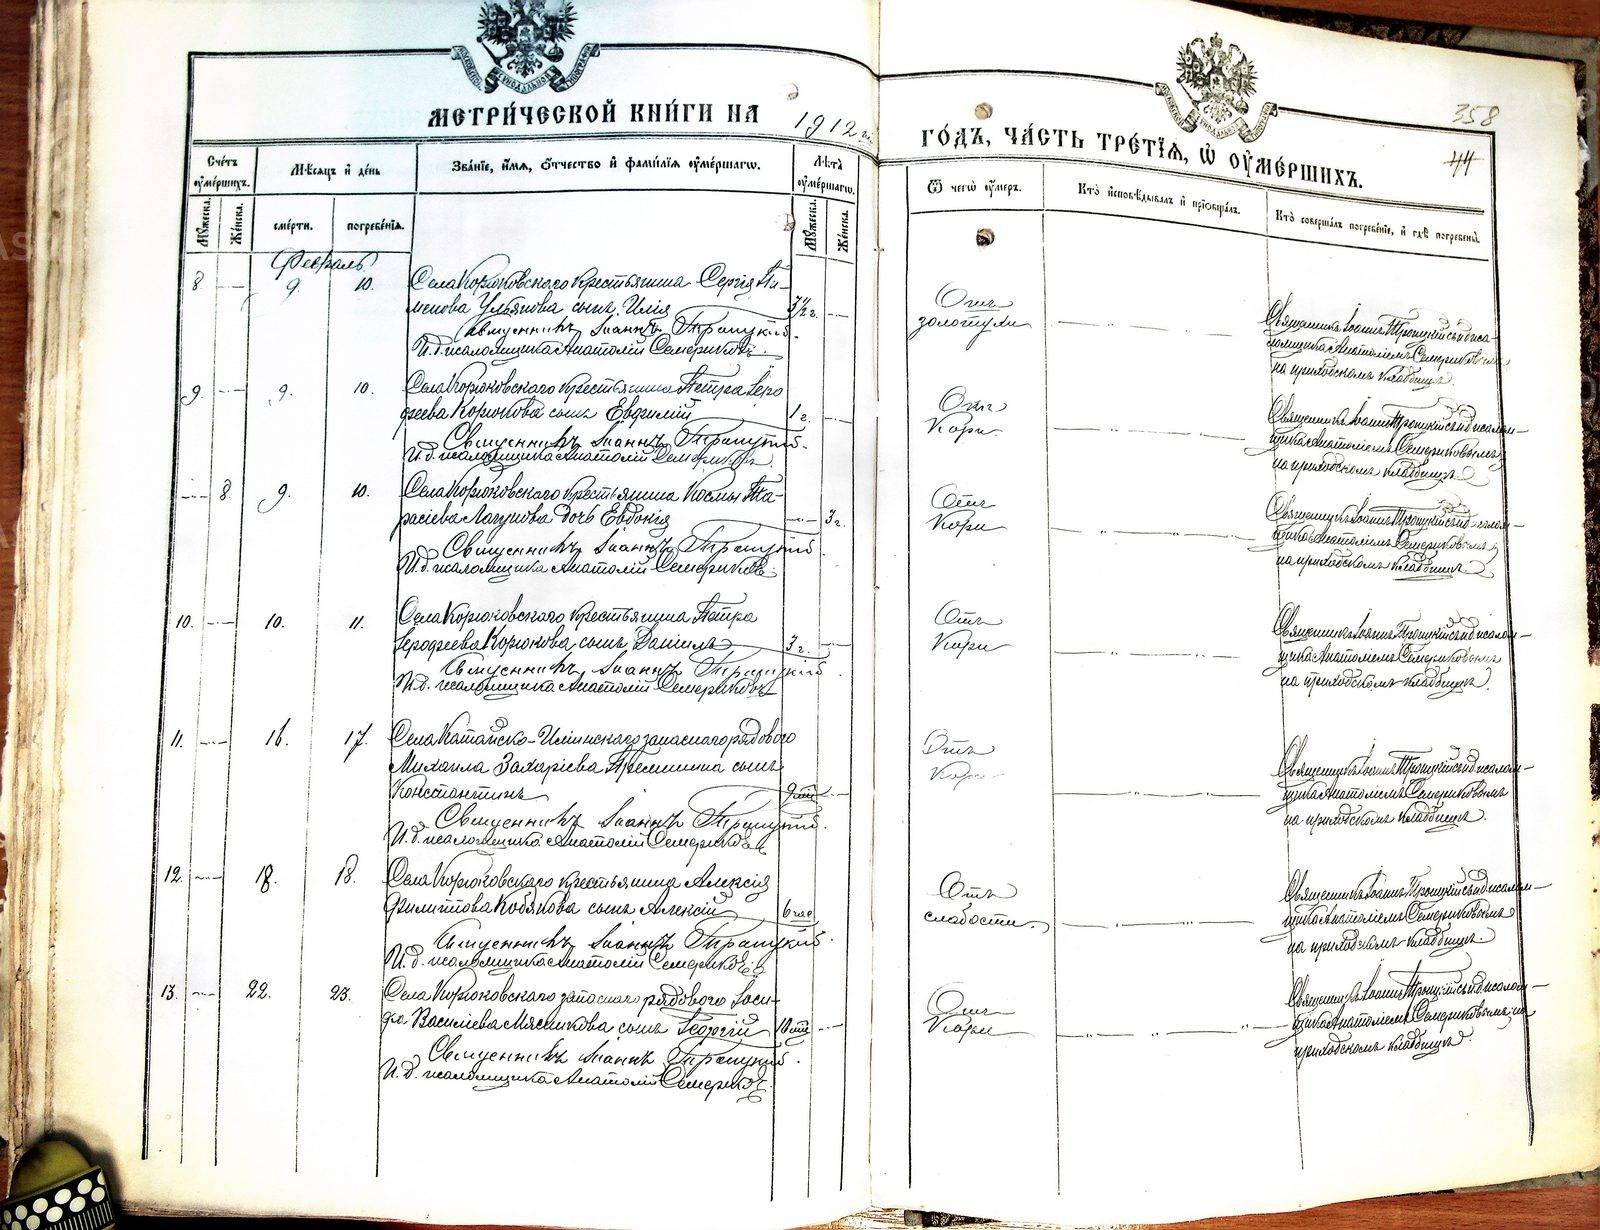 МЕТРИ́ЧЕСКОЙ КНИ́ГИ НА 1912 й
ГО́ДЪ, ЧА́СТЬ ТРЕ́ТІЯ, Ѿ ОУМЕ́РШИХЪ.
358
44
Сче́тъ оуме́ршихъ.
Мужеска.
Же́нска.
Мѣ́сяцъ и де́нь
сме́рти.
погребе́нія.
Зва́ніе, и́мя, о́тчество и фами́лія оуме́ршагѡ.
Лѣ́та оуме́ршагѡ.
Мужеска.
Же́нска.
Ѿ чегѡ̀ оу́меръ.
Кто̀ исповѣ́дывалъ и пріобща́лъ.
Кто̀ соверша́лъ погребе́ніе, и гдѣ̀ погребены̀.
Февраль
8 9. 10. Села Корюковскаго крестьянина Сергія Пи-
менова Ульянова сынъ Илія 3½ г.
Священникъ Іоаннъ Троицкій.
И.д. псаломщика Анатолій Семериковъ.
Отъ
золотухи
Священникъ Іоаннъ Троицкій съ и.д. пса-
ломщика Анатоліемъ Семериковымъ
на приходскомъ кладбищѣ.
9. 9. 10. Села Корюковскаго крестьянина Петра Іеро-
феева Корюкова сынъ Евфимій 1 г.
Священникъ Іоаннъ Троицкій.
И.д. псаломщика Анатолій Семериковъ.
Отъ
Кори.
Священникъ Іоаннъ Троицкій съ и.д. псалом-
щика Анатоліемъ Семериковымъ
на приходскомъ кладбищѣ.
8 9. 10. Села Корюковскаго крестьянина Космы Та-
расіева Лагунова дочь Евдокія 3 г.
Священникъ Іоаннъ Троицкій.
И.д. псаломщика Анатолій Семериковъ.
Отъ
Кори
Священникъ Іоаннъ Троицкій съ и.д. псалом-
щика Анатоліемъ Семериковымъ
на приходскомъ кладбищѣ.
10. 10. 11. Села Корюковскаго крестьянина Петра
Іерофеева Корюкова сынъ Даніилъ 3 г.
Священникъ Іоаннъ Троицкій.
И.д. псаломщика Анатолій Семериковъ
Отъ
Кори
Священникъ Іоаннъ Троицкій съ и.д. псалом-
щика Анатоліемъ Семериковымъ
на приходскомъ кладбищѣ.
11. 16. 17. Села Катайско-Ильинскаго запаснаго рядового
Михаила Захаріева сынъ
Константинъ 9 м.
Священникъ Іоаннъ Троицкій.
И.д. псаломщика Анатолій Семериковъ
Отъ
Кори
Священникъ Іоаннъ Троицкій съ и.д. псалом-
щика Анатоліемъ Семериковымъ
на приходскомъ кладбищѣ.
12. 18. 18. Села Корюковскаго крестьянина Алексія
Филиппова Кобякова сынъ Алексій 6 час
Священникъ Іоаннъ Троицкій.
И.д. псаломщика Анатолій Семериковъ
Отъ
слабости.
Священникъ Іоаннъ Троицкій съ и.д. псалом-
щика Анатоліемъ Семериковымъ
на приходскомъ кладбищѣ.
13. 22. 23. Села Корюковскаго запаснаго рядового Іоси-
фа Василіева Мясникова сынъ Георгій 10 м.
Священникъ Іоаннъ Троицкій.
И.д. псаломщика Анатолій Семериковъ.
Отъ
Кори
Священникъ Іоаннъ Троицкій съ и.д. псалом-
щика Анатоліемъ Семериковымъ на
приходскомъ кладбищѣ.